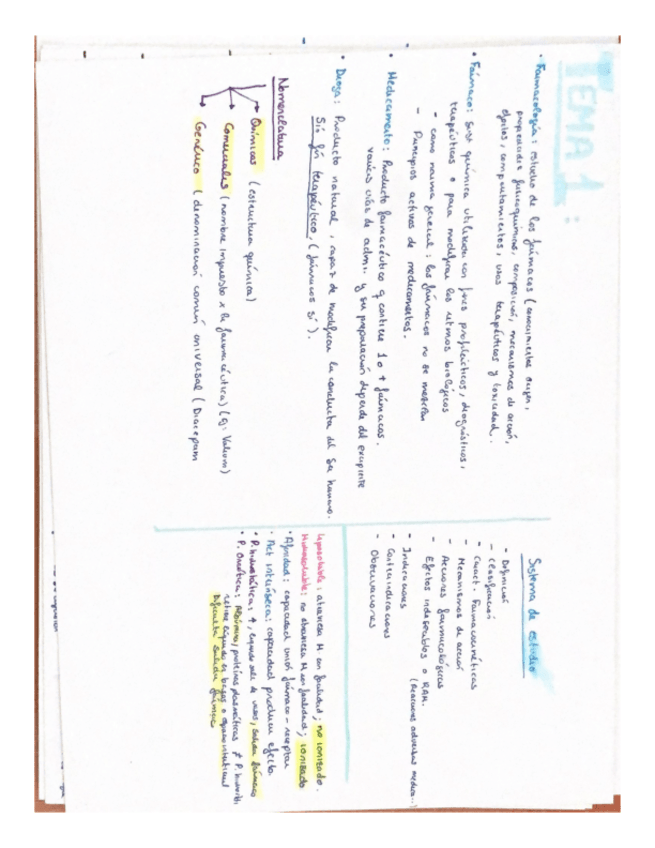 TEMA 1:
· Farmacología: estudio de los fármacos (conocimientos origen,
propiedades fisicoquímicas, composición, mecanismos de acción,
efectos, comportamientos, usos terapéuticos y toxicidad.
· Fármaco: Sust química utilizan con fines profilácticos, diagnósticos,
terapéuticos o para modificar los ritmos biológicos
- como norma general: los fármacos no se mezclan
- Principios activos de medicamentos.
· Medicamento: Producto farmacéutico q contiene 1 o + fármacos.
varias vías de adm. y su preparación depende del excipiente
· Droga: Producto natural, capaz de modificar la conducta del ser humano.
Sin fin terapéutico, (fármacos sí).
Nomenclatura
Químicas (estructura química)
Comerciales (nombre impuesto x la farmacéutica) (ej: Valium)
Genérico (denominación común universal (Diacepam
Sistema de estudio
- Definición
- Clasificación
- Caract. Farmacocinéticas
- Mecanismos de acción
- Acciones farmacológicas
- Efectos indeseables o RAM.
(Reacciones adversas medica...)
- Indicaciones
- Contraindicaciones
- Observaciones
Liposoluble: atraviesa M con facilidad; no ionizado.
Hidrosoluble: no atraviesa M con facilidad; ionizado
· Afinidad: capacidad unión fármaco-receptor
· Act intrínseca: capacidad producir efecto.
· P. hidrostática: ↑, líquido sale de vasos, salida fármaco
· P. Oncótica: Albúmina, proteínas plasmáticas ≠ P. hidrosta.
retiene líquido en
Dificulta salida fármaco